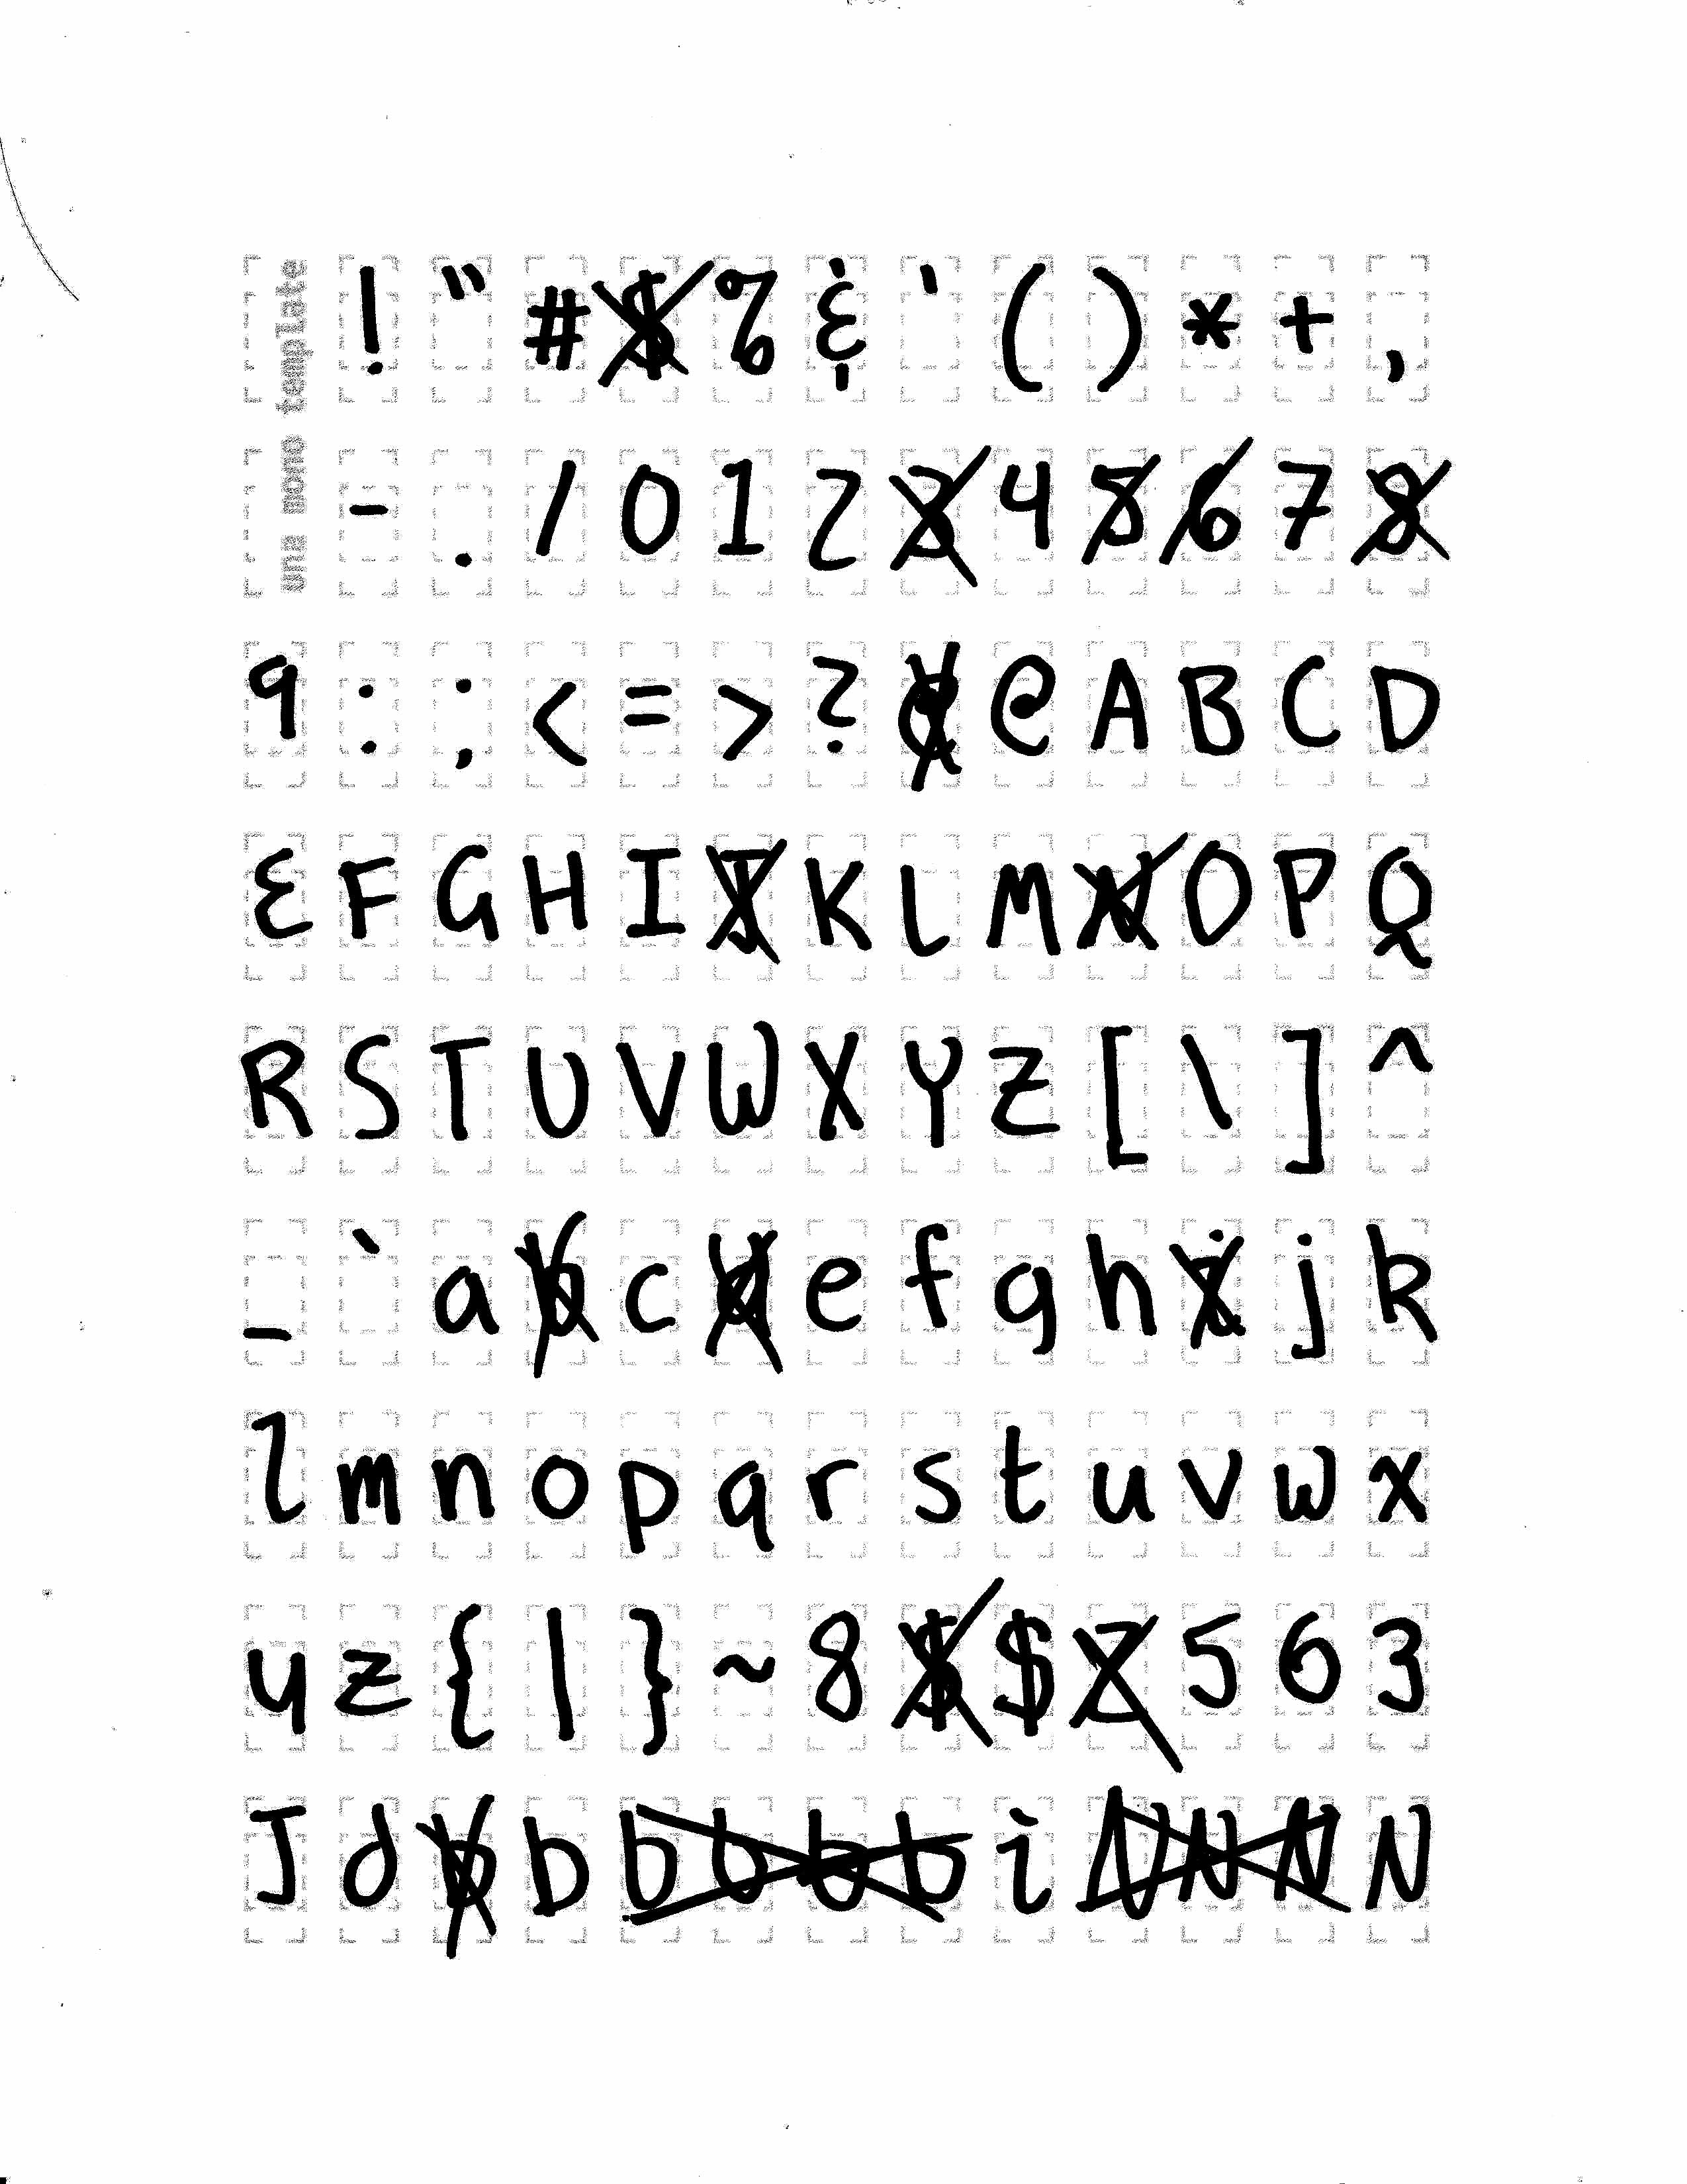 una mono template
! " # $ % & ' ( ) * + ,
- . / 0 1 2 3 4 5 6 7 8
9 : ; < = > ? @ A B C D
E F G H I J K L M N O P Q
R S T U V W X Y Z [ \ ] ^
_ ` a b c d e f g h i j k
l m n o p q r s t u v w x
y z { | } ~ 8 $ $ Z 5 6 3
J d b b b b b b i N N N N